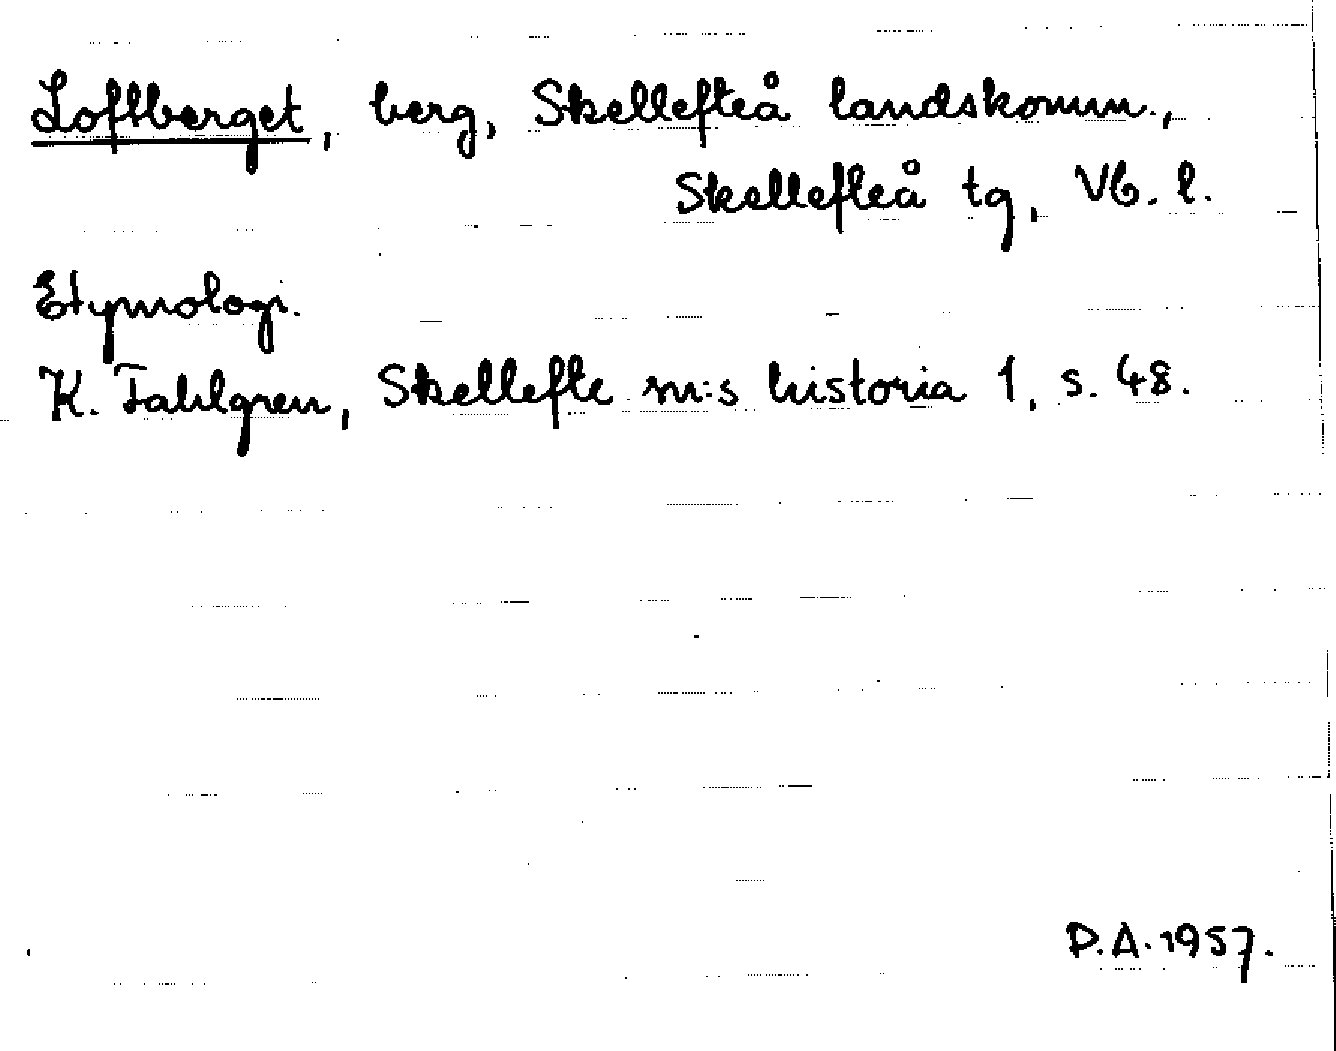 Loftberget, berg, Skellefteå landskomm.,
Skellefteå tg, Vb. l.
Etymologi.
K. Fahlgren, Skellefte sn:s historia 1, s. 48.
P.A. 1957.